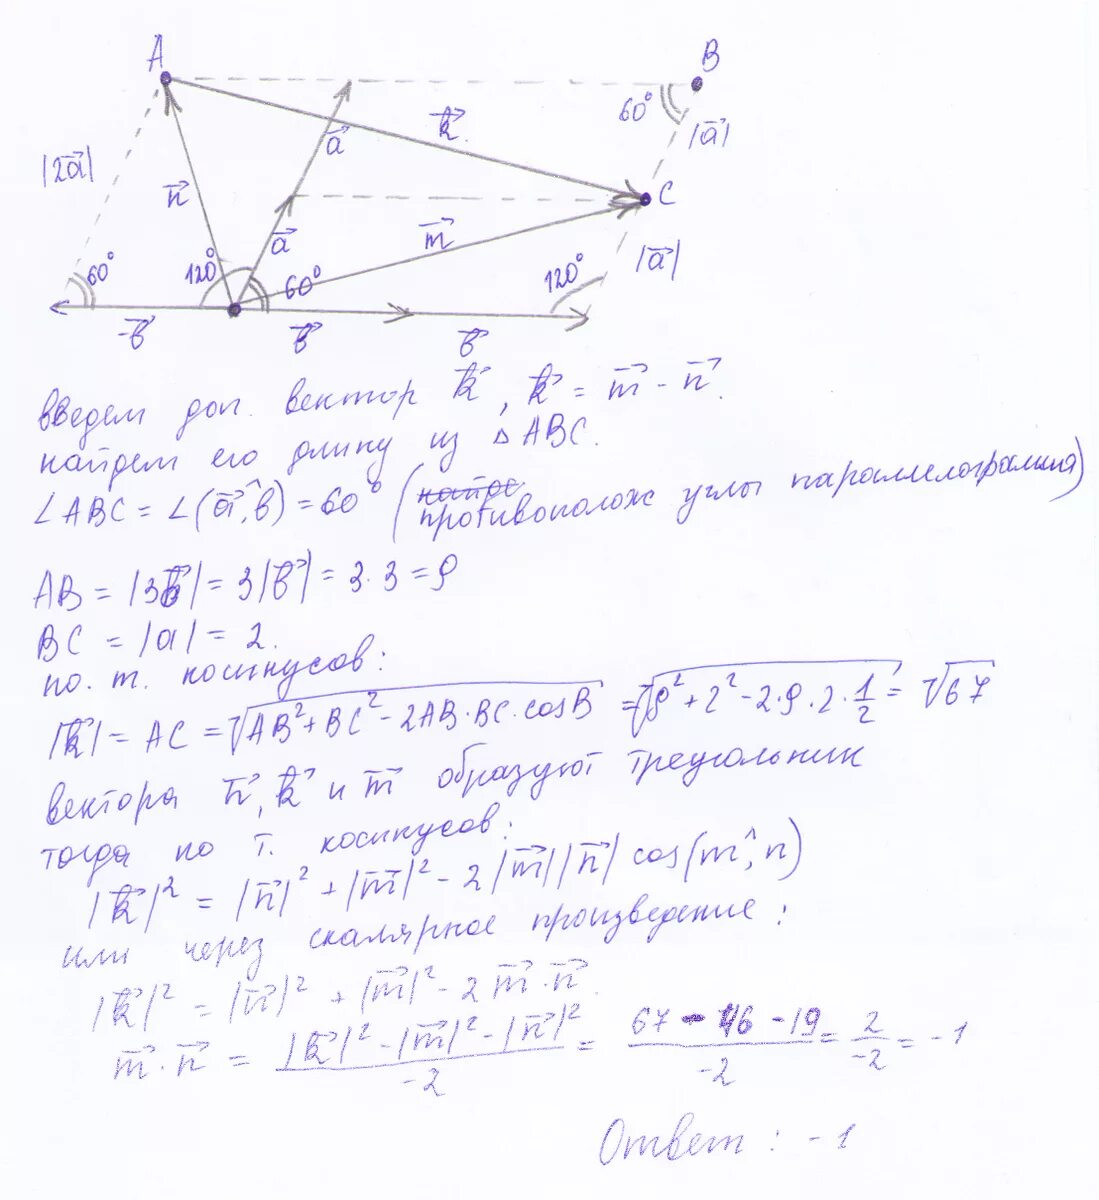 A
B
60°
|a⃗|
k⃗
a⃗
|2a⃗|
n⃗
C
m⃗
a⃗
|a⃗|
60°
120°
60°
120°
-b⃗
b⃗
b⃗
введем доп. вектор k⃗, k⃗ = m⃗ - n⃗.
найдем его длину из △ABC.
∠ABC = ∠(a⃗,^b) = 60° (противополож углы параллелограмма)
AB = |3b⃗| = 3|b⃗| = 3·3 = 9
BC = |a| = 2.
по. т. косинусов:
|k⃗| = AC = √(AB² + BC² - 2AB·BC·cosB) = √(9² + 2² - 2·9·2·1/2) = √67
вектора n⃗, k⃗ и m⃗ образуют треугольник
тогда по т. косинусов:
|k⃗|² = |n⃗|² + |m⃗|² - 2|m⃗||n⃗| cos(m,^n)
или через скалярное произведение:
|k⃗|² = |n⃗|² + |m⃗|² - 2 m⃗·n⃗.
m⃗·n⃗ = (|k⃗|² - |m⃗|² - |n⃗|²)/-2 = (67 - 46 - 19)/-2 = 2/-2 = -1
Ответ: -1